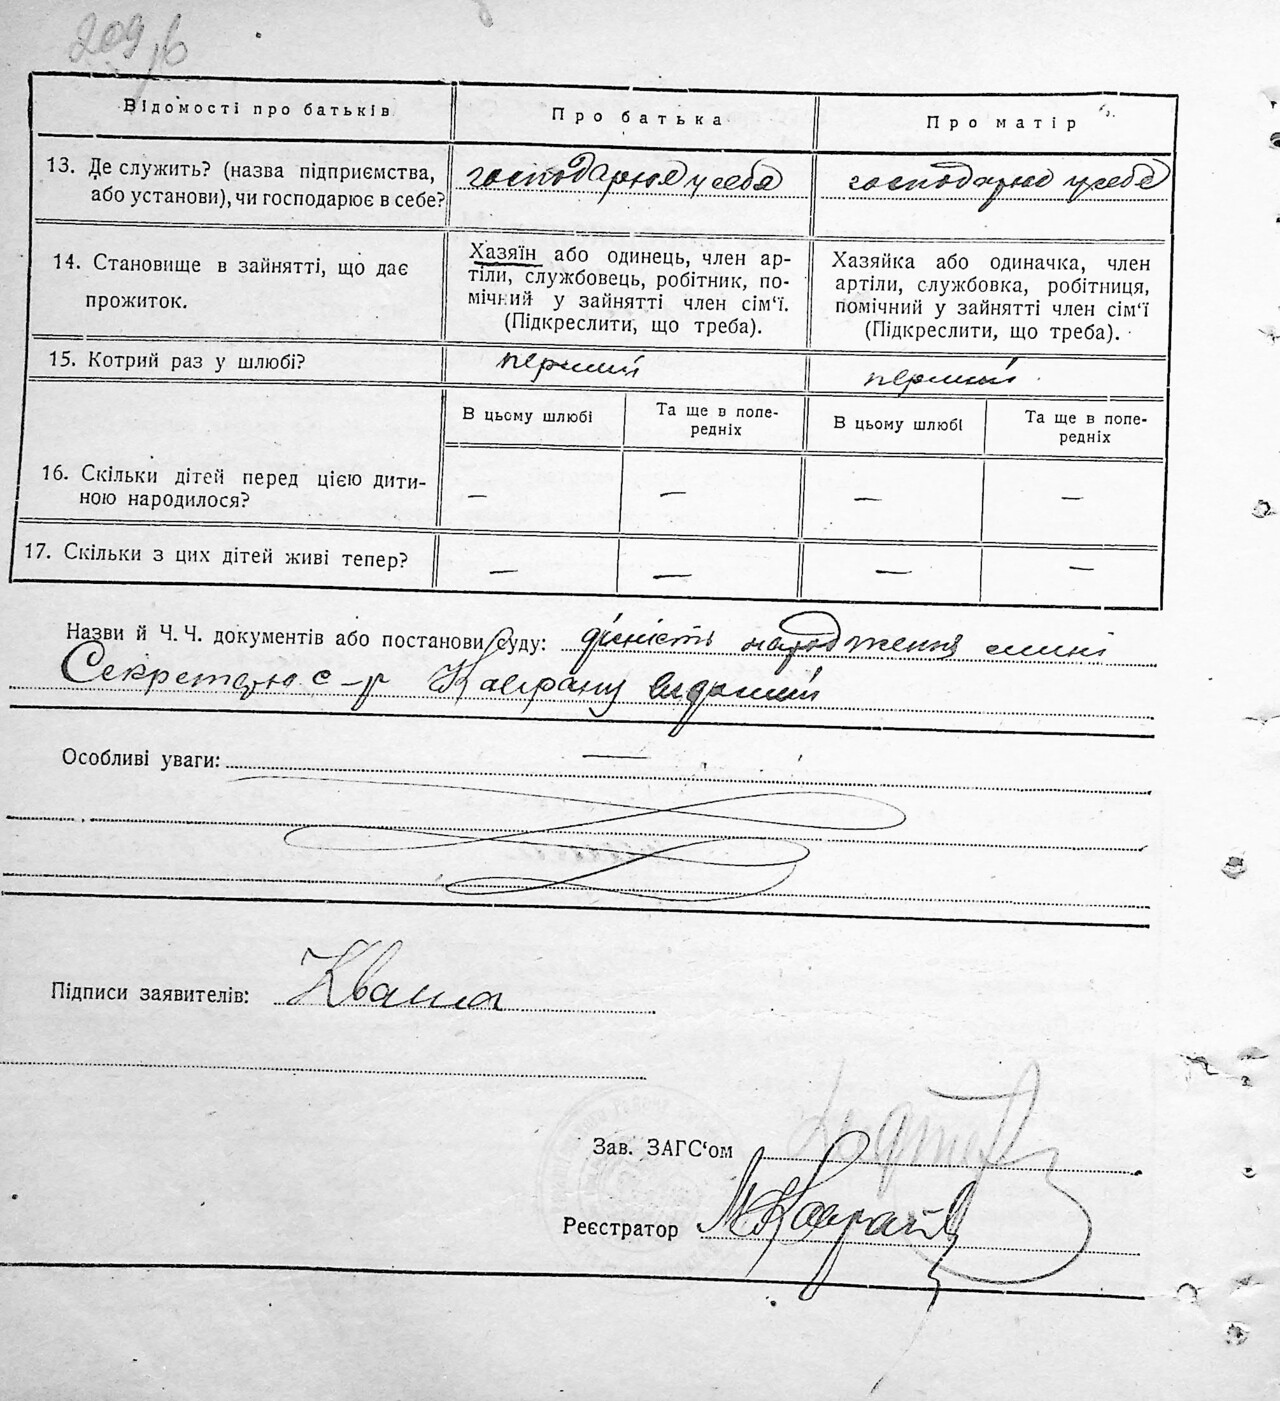 209 в
Відомості про батьків
Про батька
Про матір
13. Де служить? (назва підприємства,
або установи), чи господарює в себе?
господарює у себе
господарює у себе
14. Становище в зайнятті, що дає
прожиток.
Хазяїн або одинець, член ар-
тіли, службовець, робітник, по-
мічний у зайнятті член сім‘ї.
(Підкреслити, що треба).
Хазяйка або одиначка, член
артіли, службовка, робітниця,
помічний у зайнятті член сім‘ї
(Підкреслити, що треба).
15. Котрий раз у шлюбі?
перший
перший
В цьому шлюбі
Та ще в попе-
редніх
В цьому шлюбі
Та ще в попе-
редніх
16. Скільки дітей перед цією дити-
ною народилося?
— — — —
17. Скільки з цих дітей живі тепер?
— — — —
Назви й Ч. Ч. документів або постанови суду: дійсність народження
Секретарю с-р
Особливі уваги: —
Підписи заявителів: Кваша
Зав. ЗАГС‘ом
Реєстратор